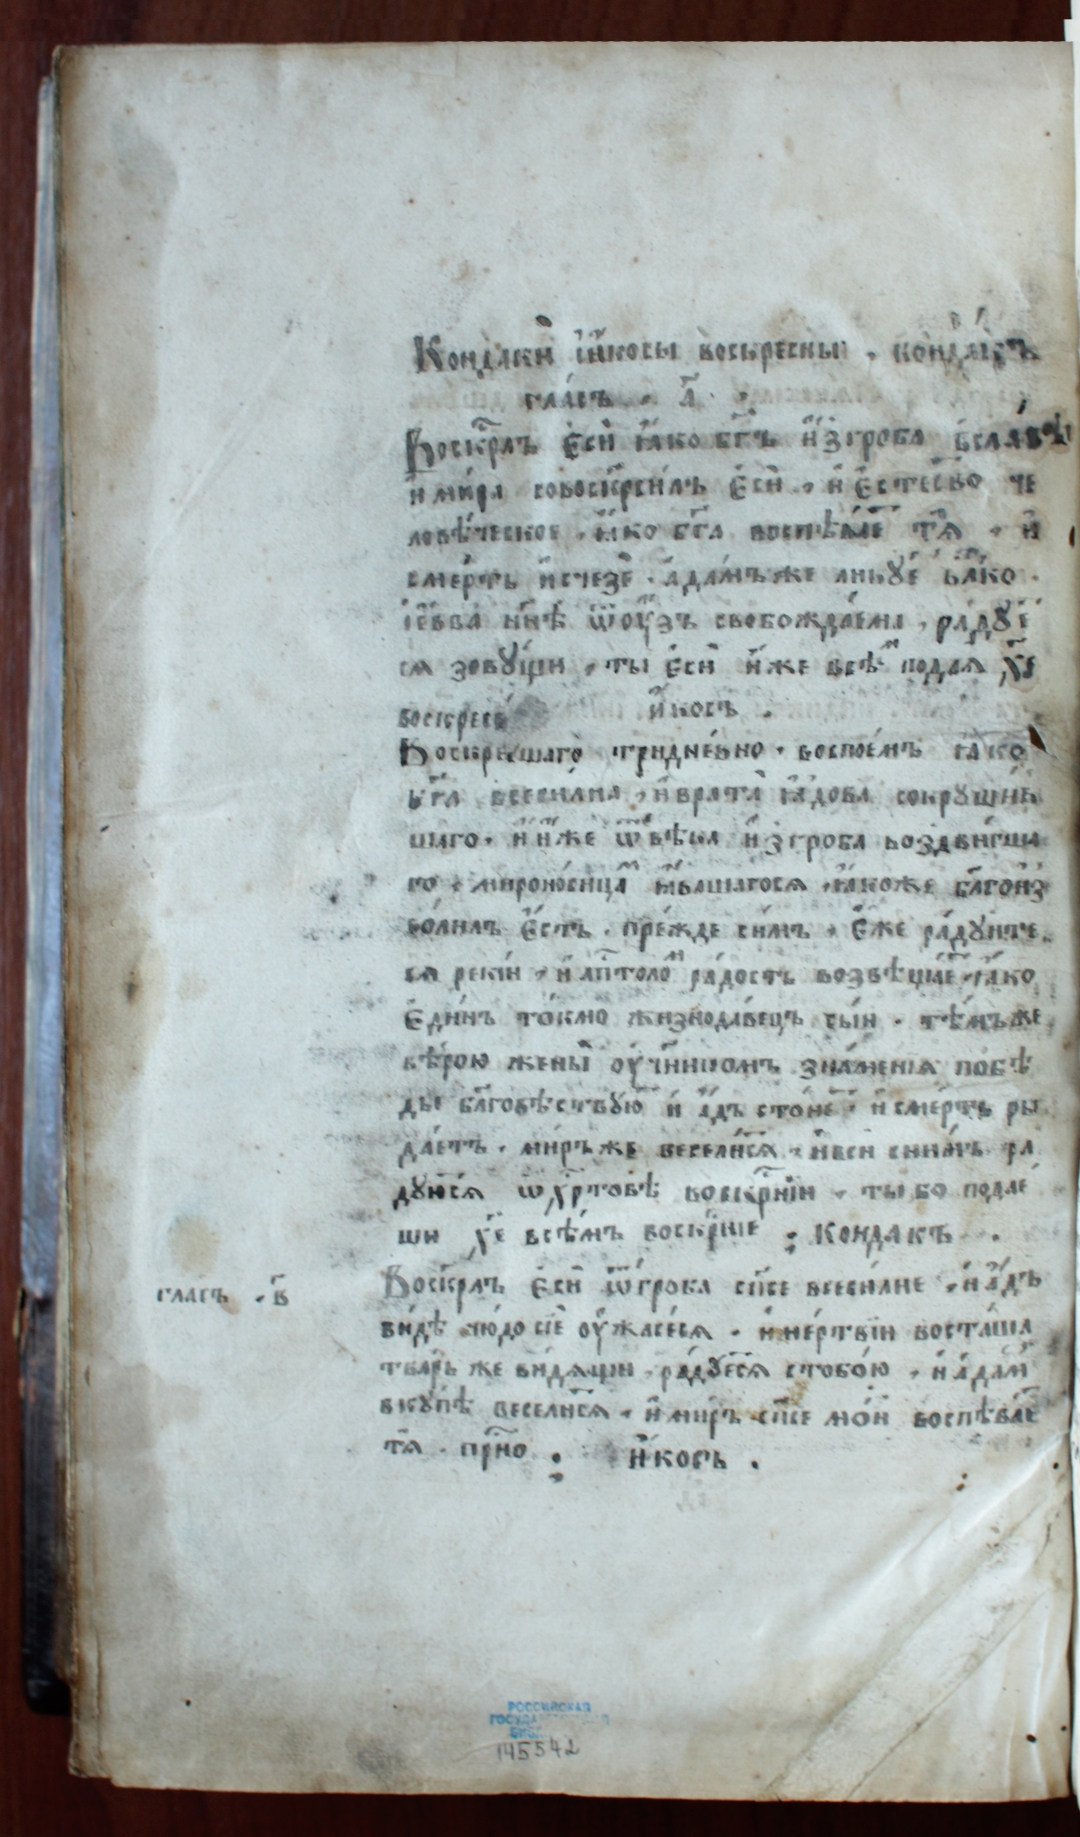 Кондаки и҆икосы воскресны . кондакъ
гласъ . а҃ .
Воскр҃лъ є҆сѝ ꙗ҆́ко бг҃ъ и҆з̾гроба всла́вѣ
и҆ ми́ра совоскр҃си́лъ є҆сѝ . и҆ є҆стество̀ че
ловѣ́ческое . ꙗ҆́ко бг҃а воспѣва́е тѧ̀ . и҆
сме́рть и҆счезѐ . а҆да́мъже ликꙋ́е вл҃ко .
і҆є҆́вва нн҃ѣ ѿоу҆́зъ свобожда́ема , ра́дꙋе
сѧ зовꙋ́щи . ты̀ є҆сѝ и҆́же всѣ̑ пода́ѧ хе҃
воскресе́ и҆́косъ .
Воскре́сшаго тридне́вно . воспое́мъ ꙗ҆́ко
бг҃а всеси́лна . и҆врата̀ а҆́дова сокрꙋши́в
шаго . и҆ и҆̀же ѿвѣ́ка и҆з̾гроба воздви́гша
го . мѷроно́сица ꙗ҆́вльшагосѧ . ꙗ҆́коже бл҃гои҆з
во́лилъ є҆́сть . пре́жде си́мъ . є҆́же ра́дꙋите
сѧ реки́и . и҆ ап҃толо ра́дость возвѣща́е ꙗ҆́ко
є҆ди́нъ то́кмо жизнода́вецъ сы́и . тѣ́мъже
вѣ́рою жены̀ оу҆чн҃икомъ зна́мениѧ побѣ
ды бл҃говѣствꙋю и҆ а҆́дъ сто́не . и҆ сме́рть ры
да́етъ . ми́ръже весели́сѧ . и҆вси сни́мъ ра
дꙋ́исѧ ѿ хр҃то́вѣ воскр҃нии . ты̀ бо подае́
ши хе҃ всѣ́мъ воскр҃ние : Кондакъ .
гласъ . в҃
Воскр҃лъ є҆сѝ ѿгроба сп҃се всеси́лне . и҆ а҆́дъ
ви́дѣ чю́до сїѐ оу҆жасе́сѧ . и҆ ме́ртвїи воста́ша
тва́рь же ви́дѧщи ра́дꙋетсѧ стобо́ю . и҆ а҆да́м
вкꙋ́пѣ весели́тсѧ . и҆ ми́ръ сп҃се мо́и воспѣва́е
тѧ̀ . прⷭ҇но : и҆́косъ .
РОССИЙСКАЯ
ГОСУДАРСТВЕННАЯ
145542